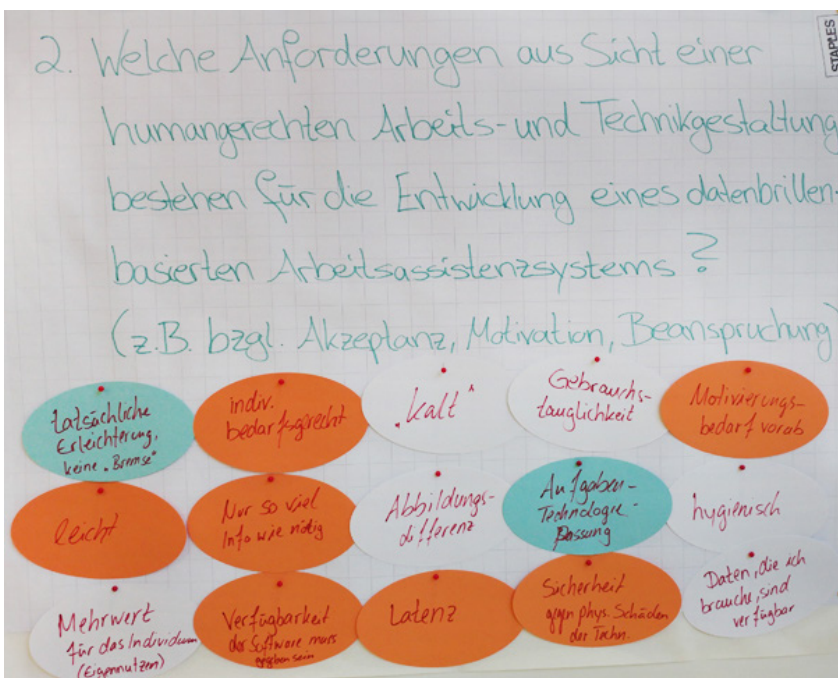 STAPLES
2. Welche Anforderungen aus Sicht einer
humangerechten Arbeits- und Technikgestaltung
bestehen für die Entwicklung eines datenbrillen-
basierten Arbeitsassistenzsystems?
(z.B. bzgl. Akzeptanz, Motivation, Beanspruchung)
tatsächliche
Erleichterung,
keine „Bremse"
indiv.
bedarfsgerecht
„kalt"
Gebrauchs-
tauglichkeit
Motivierungs-
bedarf vorab
leicht
Nur so viel
Info wie nötig
Abbildungs-
differenz
Aufgaben-
Technologie-
Passung
hygienisch
Mehrwert
für das Individuum
(Eigennutzen)
Verfügbarkeit
der Software muss
gegeben sein
Latenz
Sicherheit
gegen phys. Schäden
der Techn.
Daten, die ich
brauche, sind
verfügbar